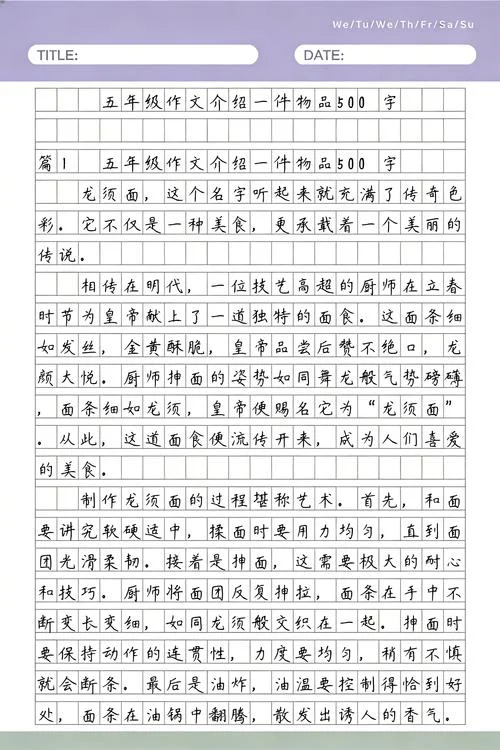 We/Tu/We/Th/Fr/Sa/Su
TITLE: DATE:
五年级作文介绍一件物品500 字
篇1 五年级作文介绍一件物品500 字
龙须面，这个名字听起来就充满了传奇色
彩。它不仅是一种美食，更承载着一个美丽的
传说。
相传在明代，一位技艺高超的厨师在立春
时节为皇帝献上了一道独特的面食。这面条细
如发丝，金黄酥脆，皇帝品尝后赞不绝口，龙
颜大悦。厨师抻面的姿势如同舞龙般气势磅礴
，面条细如龙须，皇帝便赐名它为“龙须面”
。从此，这道面食便流传开来，成为人们喜爱
的美食。
制作龙须面的过程堪称艺术。首先，和面
要讲究软硬适中，揉面时要用力均匀，直到面
团光滑柔韧。接着是抻面，这需要极大的耐心
和技巧。厨师将面团反复抻拉，面条在手中不
断变长变细，如同龙须般交织在一起。抻面时
要保持动作的连贯性，力度要均匀，稍有不慎
就会断条。最后是油炸，油温要控制得恰到好
处，面条在油锅中翻腾，散发出诱人的香气。